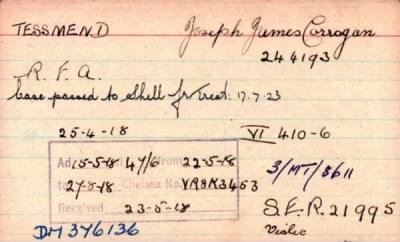 TESSMEND Joseph James Corrogan
244193
R. F. A.
Case passed to Shell for Treat: 17.7.23
25-4-18 VI 410-6
Ad 15-5-18 47/6 From 22-5-18
to 27-5-18 Chelsea No. VRSK3453 3/MT/8611
Received 23-5-18 S.E.R. 21995
DM 376136 Violet